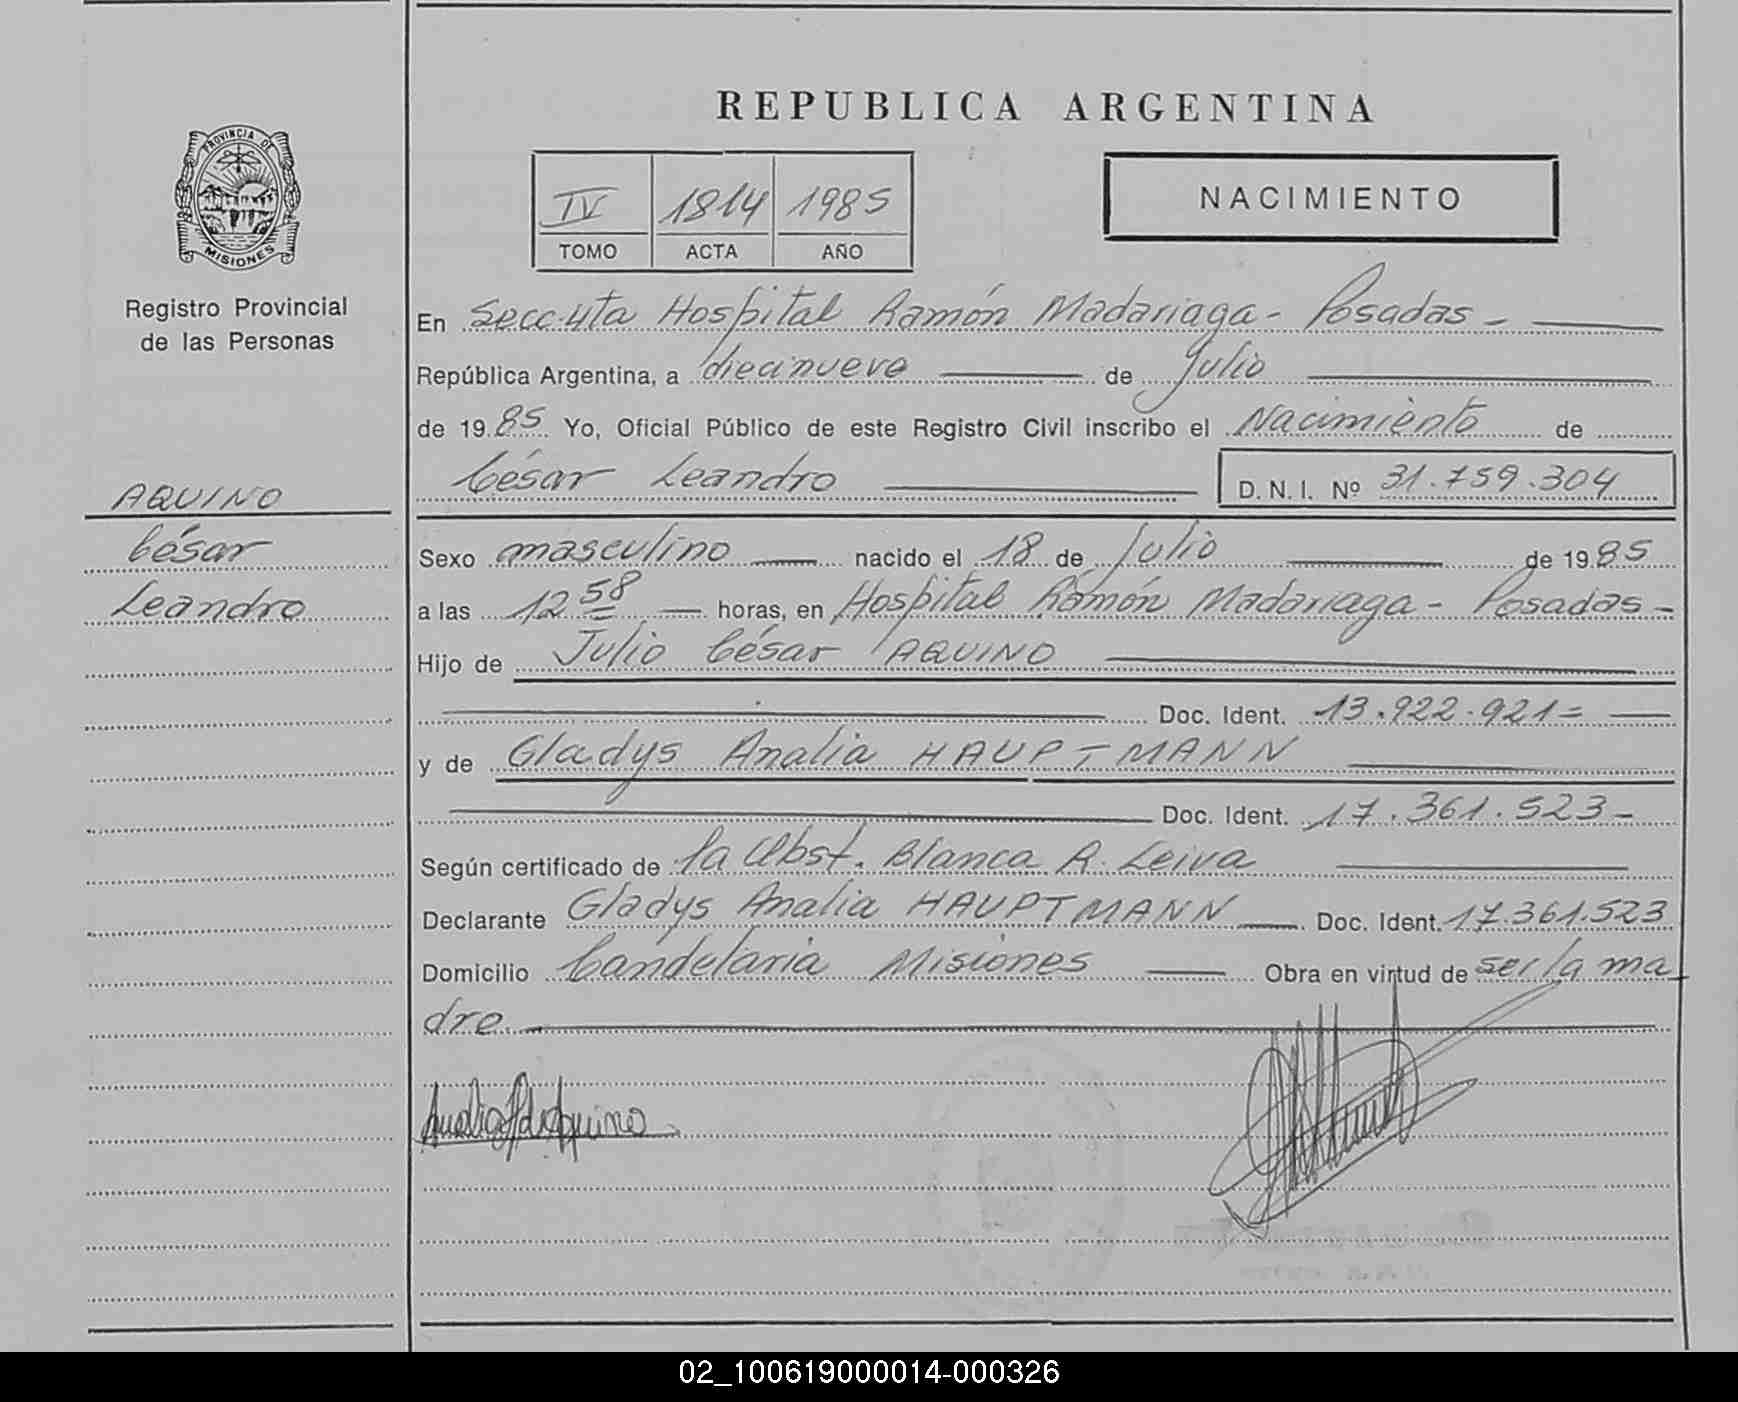 REPUBLICA ARGENTINA
PROVINCIA DE
MISIONES
Registro Provincial
de las Personas
IV 1814 1985
TOMO ACTA AÑO
NACIMIENTO
En Secc. 4ta Hospital Ramón Madariaga - Posadas -
República Argentina, a diecinueve de Julio
de 1985 Yo, Oficial Público de este Registro Civil inscribo el Nacimiento de
César Leandro D.N.I. Nº 31.759.304
AQUINO
César
Leandro
Sexo masculino nacido el 18 de Julio de 1985
a las 12 58 horas, en Hospital Ramón Madariaga - Posadas -
Hijo de Julio César AQUINO
Doc. Ident. 13.922.921=
y de Gladys Analia HAUPTMANN
Doc. Ident. 17.361.523-
Según certificado de la Obst. Blanca R. Leiva
Declarante Gladys Analia HAUPTMANN Doc. Ident. 17.361.523
Domicilio Candelaria Misiones Obra en virtud de ser la ma
dre
02_100619000014-000326